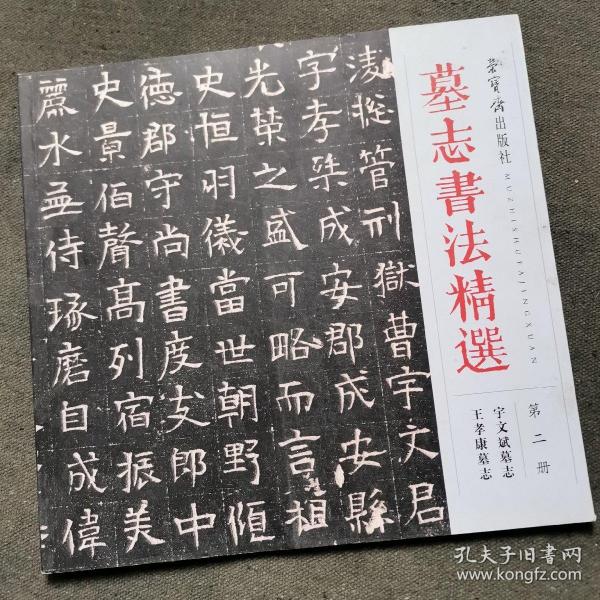 凌㧾管刑獄曹宇文君
字孝桀成安郡成安縣
光榮之盛可略而言祖
史恒羽儀當世朝野傾
德郡守尚書度支郎中
史景伯聲高列宿振美
麗水並侍琢磨自成偉
榮寶齋出版社
墓志書法精選
MUZHISHUFAJINGXUAN
第二册
宇文斌墓志
王孝康墓志
孔夫子旧書网
www.kongfz.com